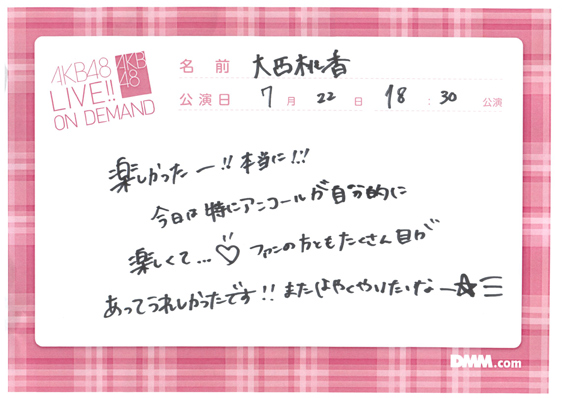 AKB48
LIVE!!
ON DEMAND
AKB
48
名前 大西桃香
公演日 7月 22日 18:30 公演
楽しかったー!! 本当に!!!
今日は特にアンコールが自分的に
楽しくて...♡ ファンの方ともたくさん目が
あってうれしかったです!! またはやくやりたいなー☆三
DMM.com